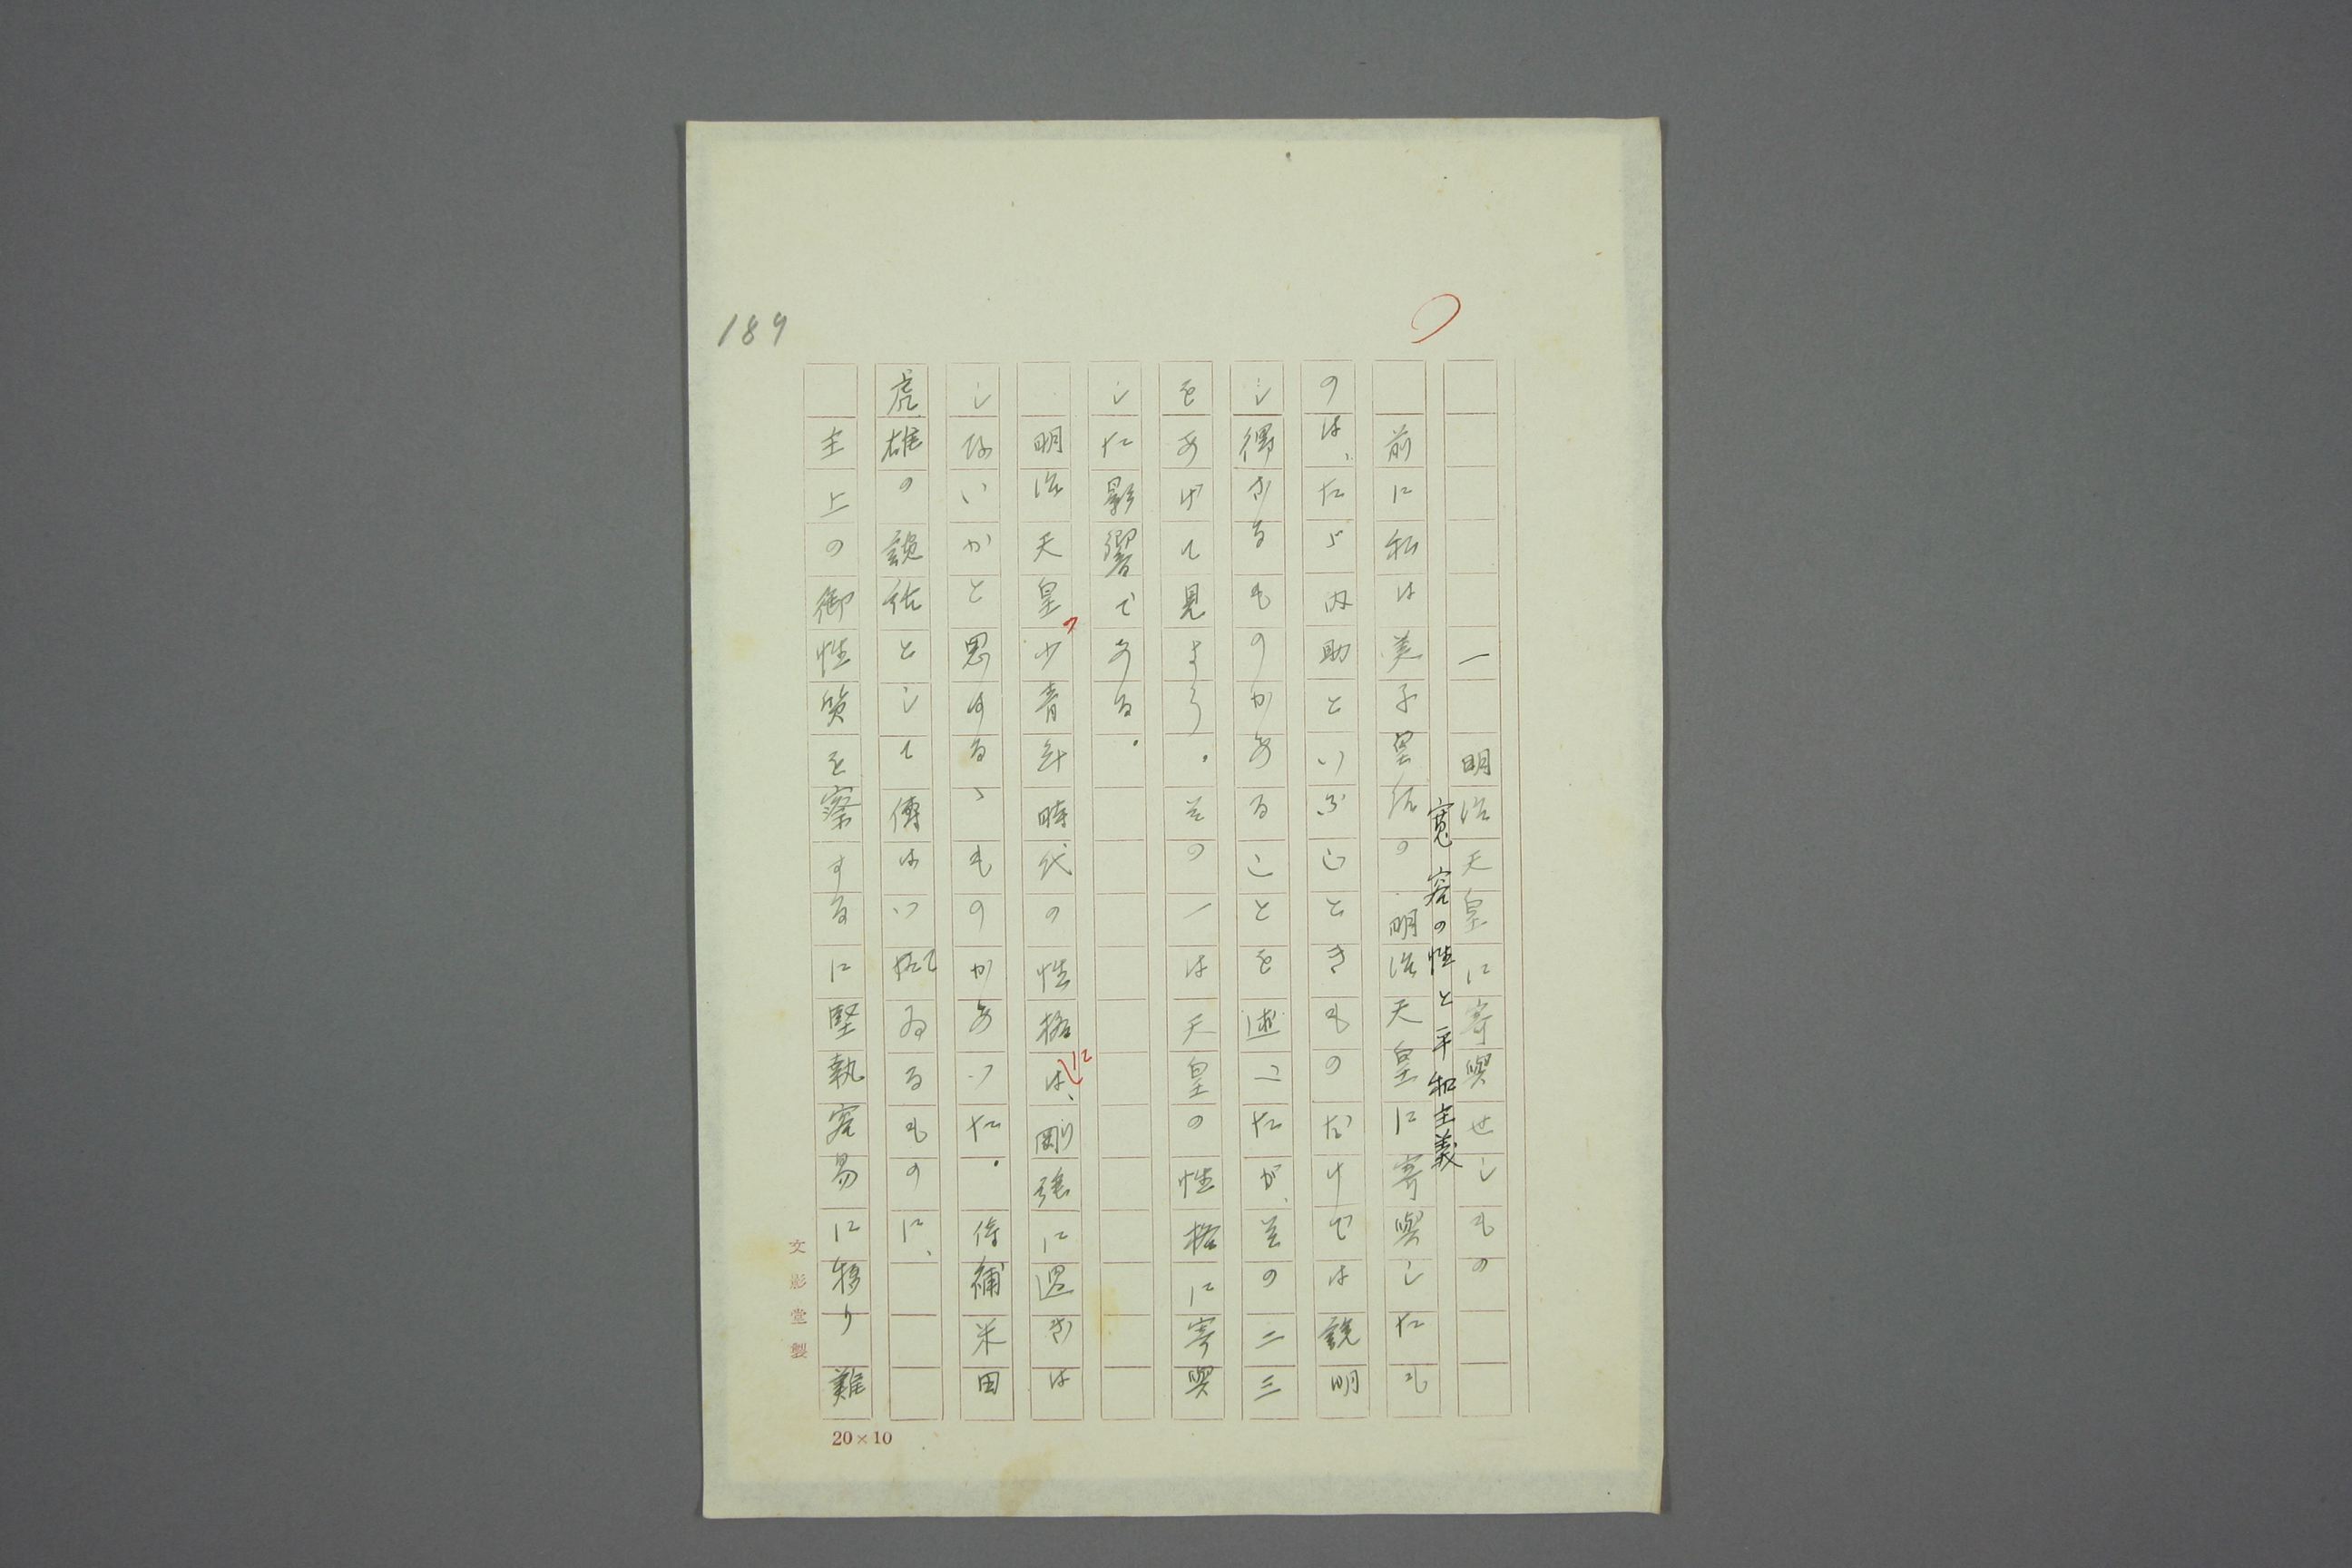 189
一 明治天皇に寄與せしもの
寛容の性と平和主義
前に私は美子皇后の明治天皇に寄與したも
のは、たゞ内助といふごときものだけでは説明
し得ざるものがあることを述べたが、その二三
をあげて見よう。その一は天皇の性格に寄與
した影響である。
明治天皇の少青年時代の性格には、剛强に過ぎは
しないかと思はるゝものがあつた。侍補米田
虎雄の談話として傳はつてゐるものに、
主上の御性質を察するに堅執容易に移り難
文影堂製
20×10